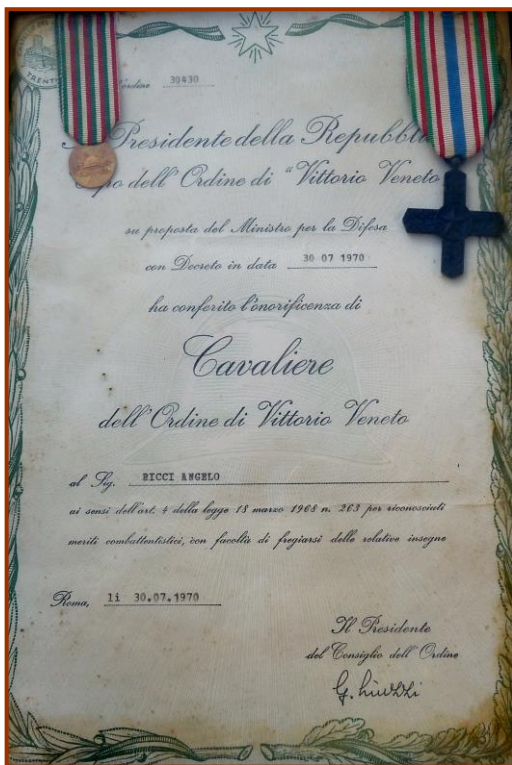 TRENT
ordine 30430
Presidente della Repubbli
po dell' Ordine di "Vittorio Veneto
su proposta del Ministro per la Difesa
con Decreto in data 30 07 1970
ha conferito l'onorificenza di
Cavaliere
dell' Ordine di Vittorio Veneto
al Sig. RICCI ANGELO
ai sensi dell'art. 4 della legge 18 marzo 1968 n. 263 per riconosciuti
meriti combattentistici, con facoltà di fregiarsi delle relative insegne
Roma, li 30.07.1970
Il Presidente
del Consiglio dell' Ordine